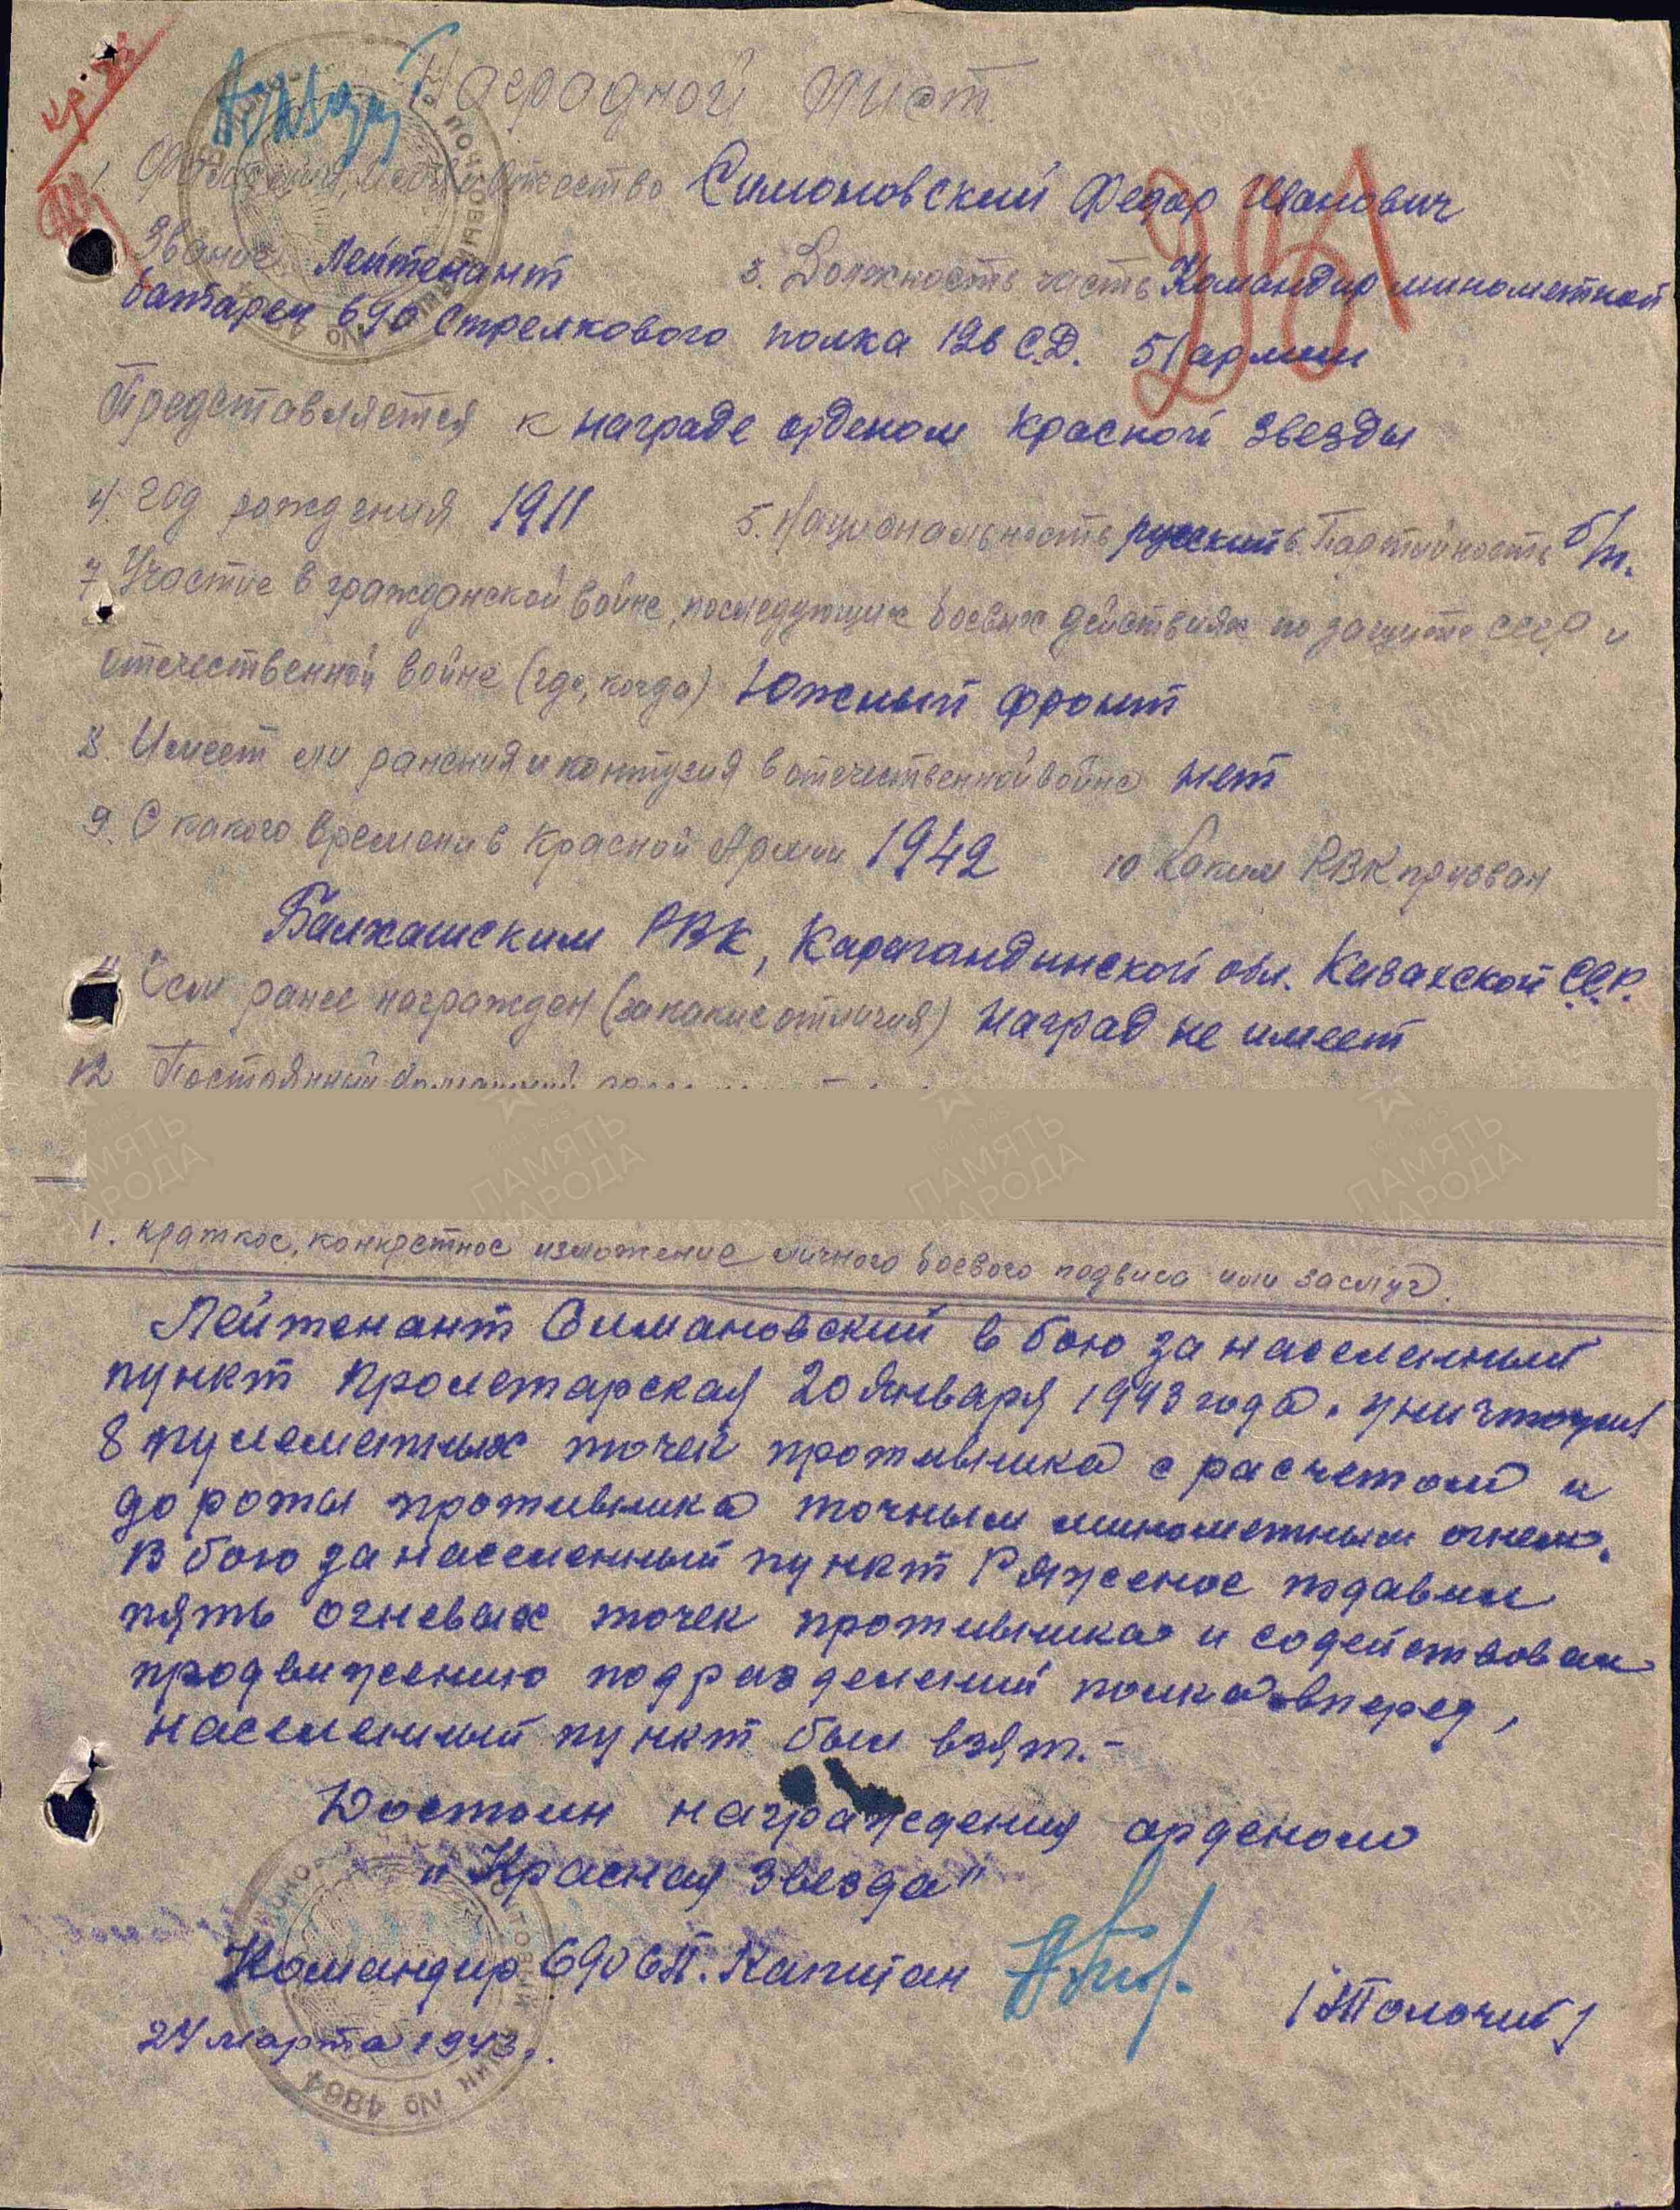 Наградной лист
1. Фамилия, имя и отчество Симоновский Федор Иванович
Звание Лейтенант 3. Должность часть Командир минометной
батареи 690 Стрелкового полка 126 С.Д. 51 армии
Представляется к награде орденом Красной Звезды
4. Год рождения 1911 5. Национальность русский 6. Партийность б/п.
7. Участие в гражданской войне, последующих боевых действиях по защите СССР и
отечественной войне (где, когда) Южный фронт
8. Имеет ли ранения и контузия в отечественной войне нет
9. С какого времени в Красной Армии 1942 10 Каким РВК призван
Балхашским РВК, Карагандинской обл. Казахской ССР.
11 Чем ранее награжден (за какие отличия) Наград не имеет
12 Постоянный домашний
ПАМЯТЬ НАРОДА
1. Краткое, конкретное изложение личного боевого подвига или заслуг.
Лейтенант Симановский в бою за населенный
пункт Пролетарская 20 Января 1943 года. уничтожил
8 пулеметных точек противника с расчетом и
до роты противника точным минометным огнем.
В бою за населенный пункт Ряженое подавил
пять огневых точек противника и содействовал
продвижению подразделений полка вперед,
населенный пункт был взят.-
Достоин награждения орденом
"Красная Звезда"
Командир 690 СП. Капитан /Толочий/
24 марта 1943 г.
№ 4864